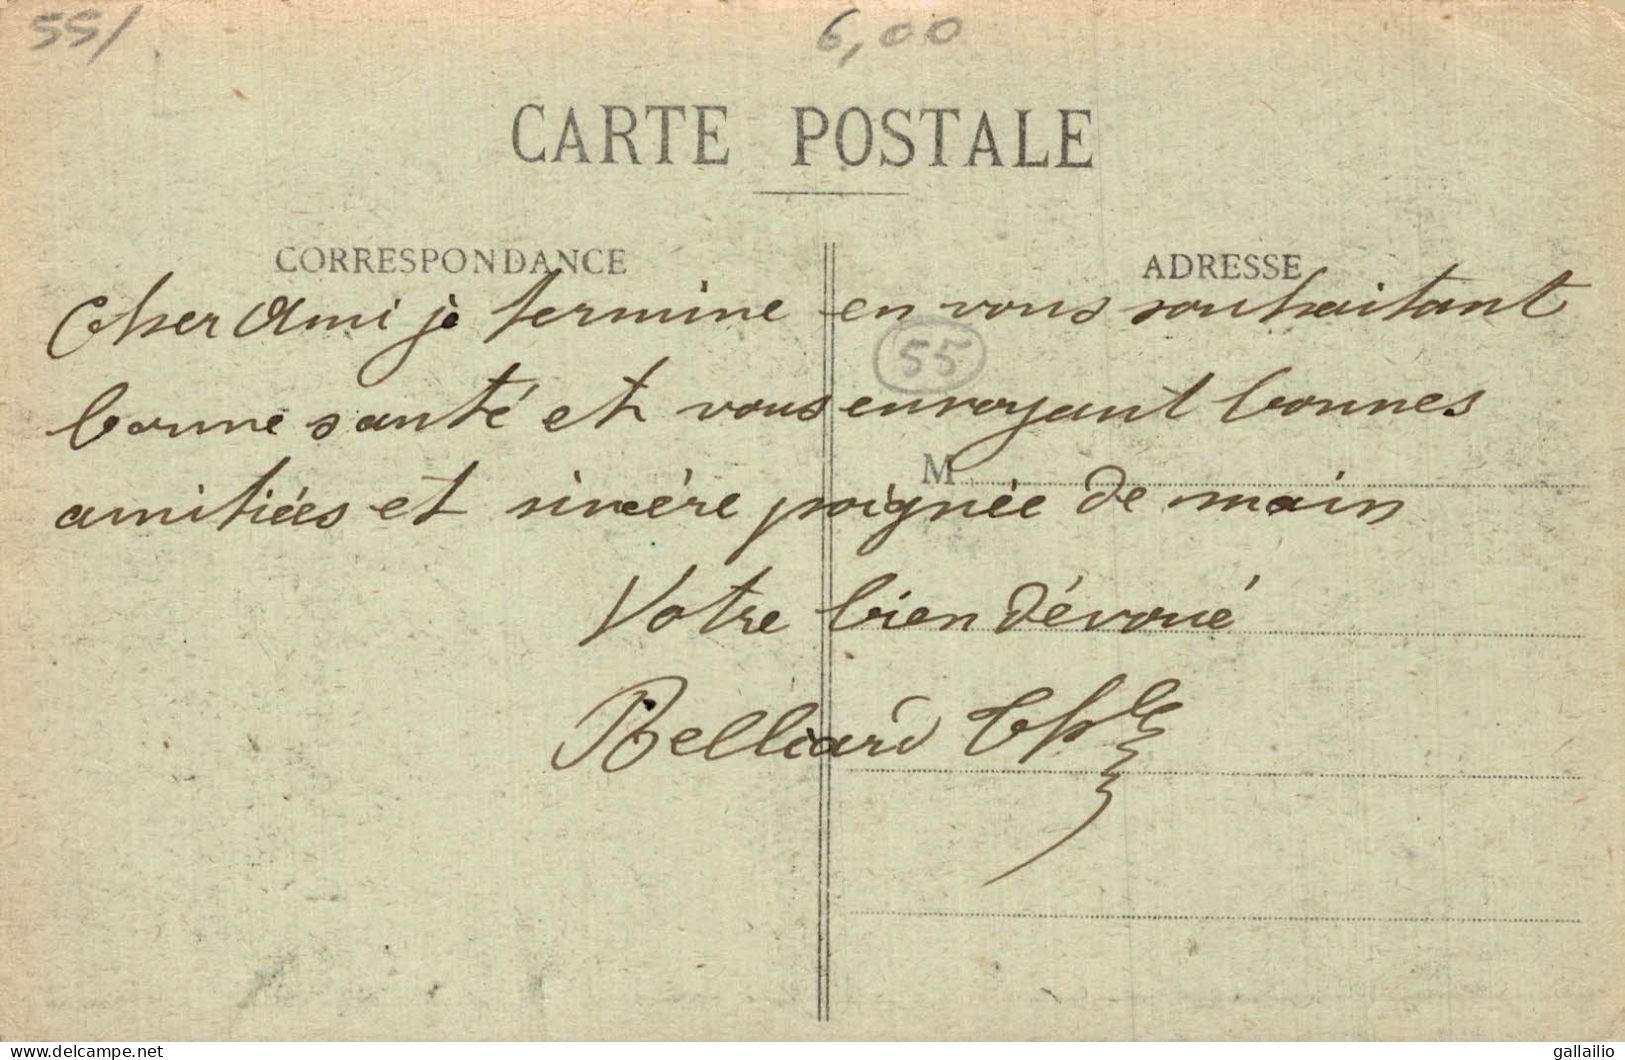 55/ 6,00
CARTE POSTALE
CORRESPONDANCE ADRESSE
Cher Ami je termine en vous souhaitant
55
bonne santé et vous envoyant bonnes
M
amitiées et sincère poignée de main
Votre bien dévoué
Belliard
www.delcampe.net gallailio